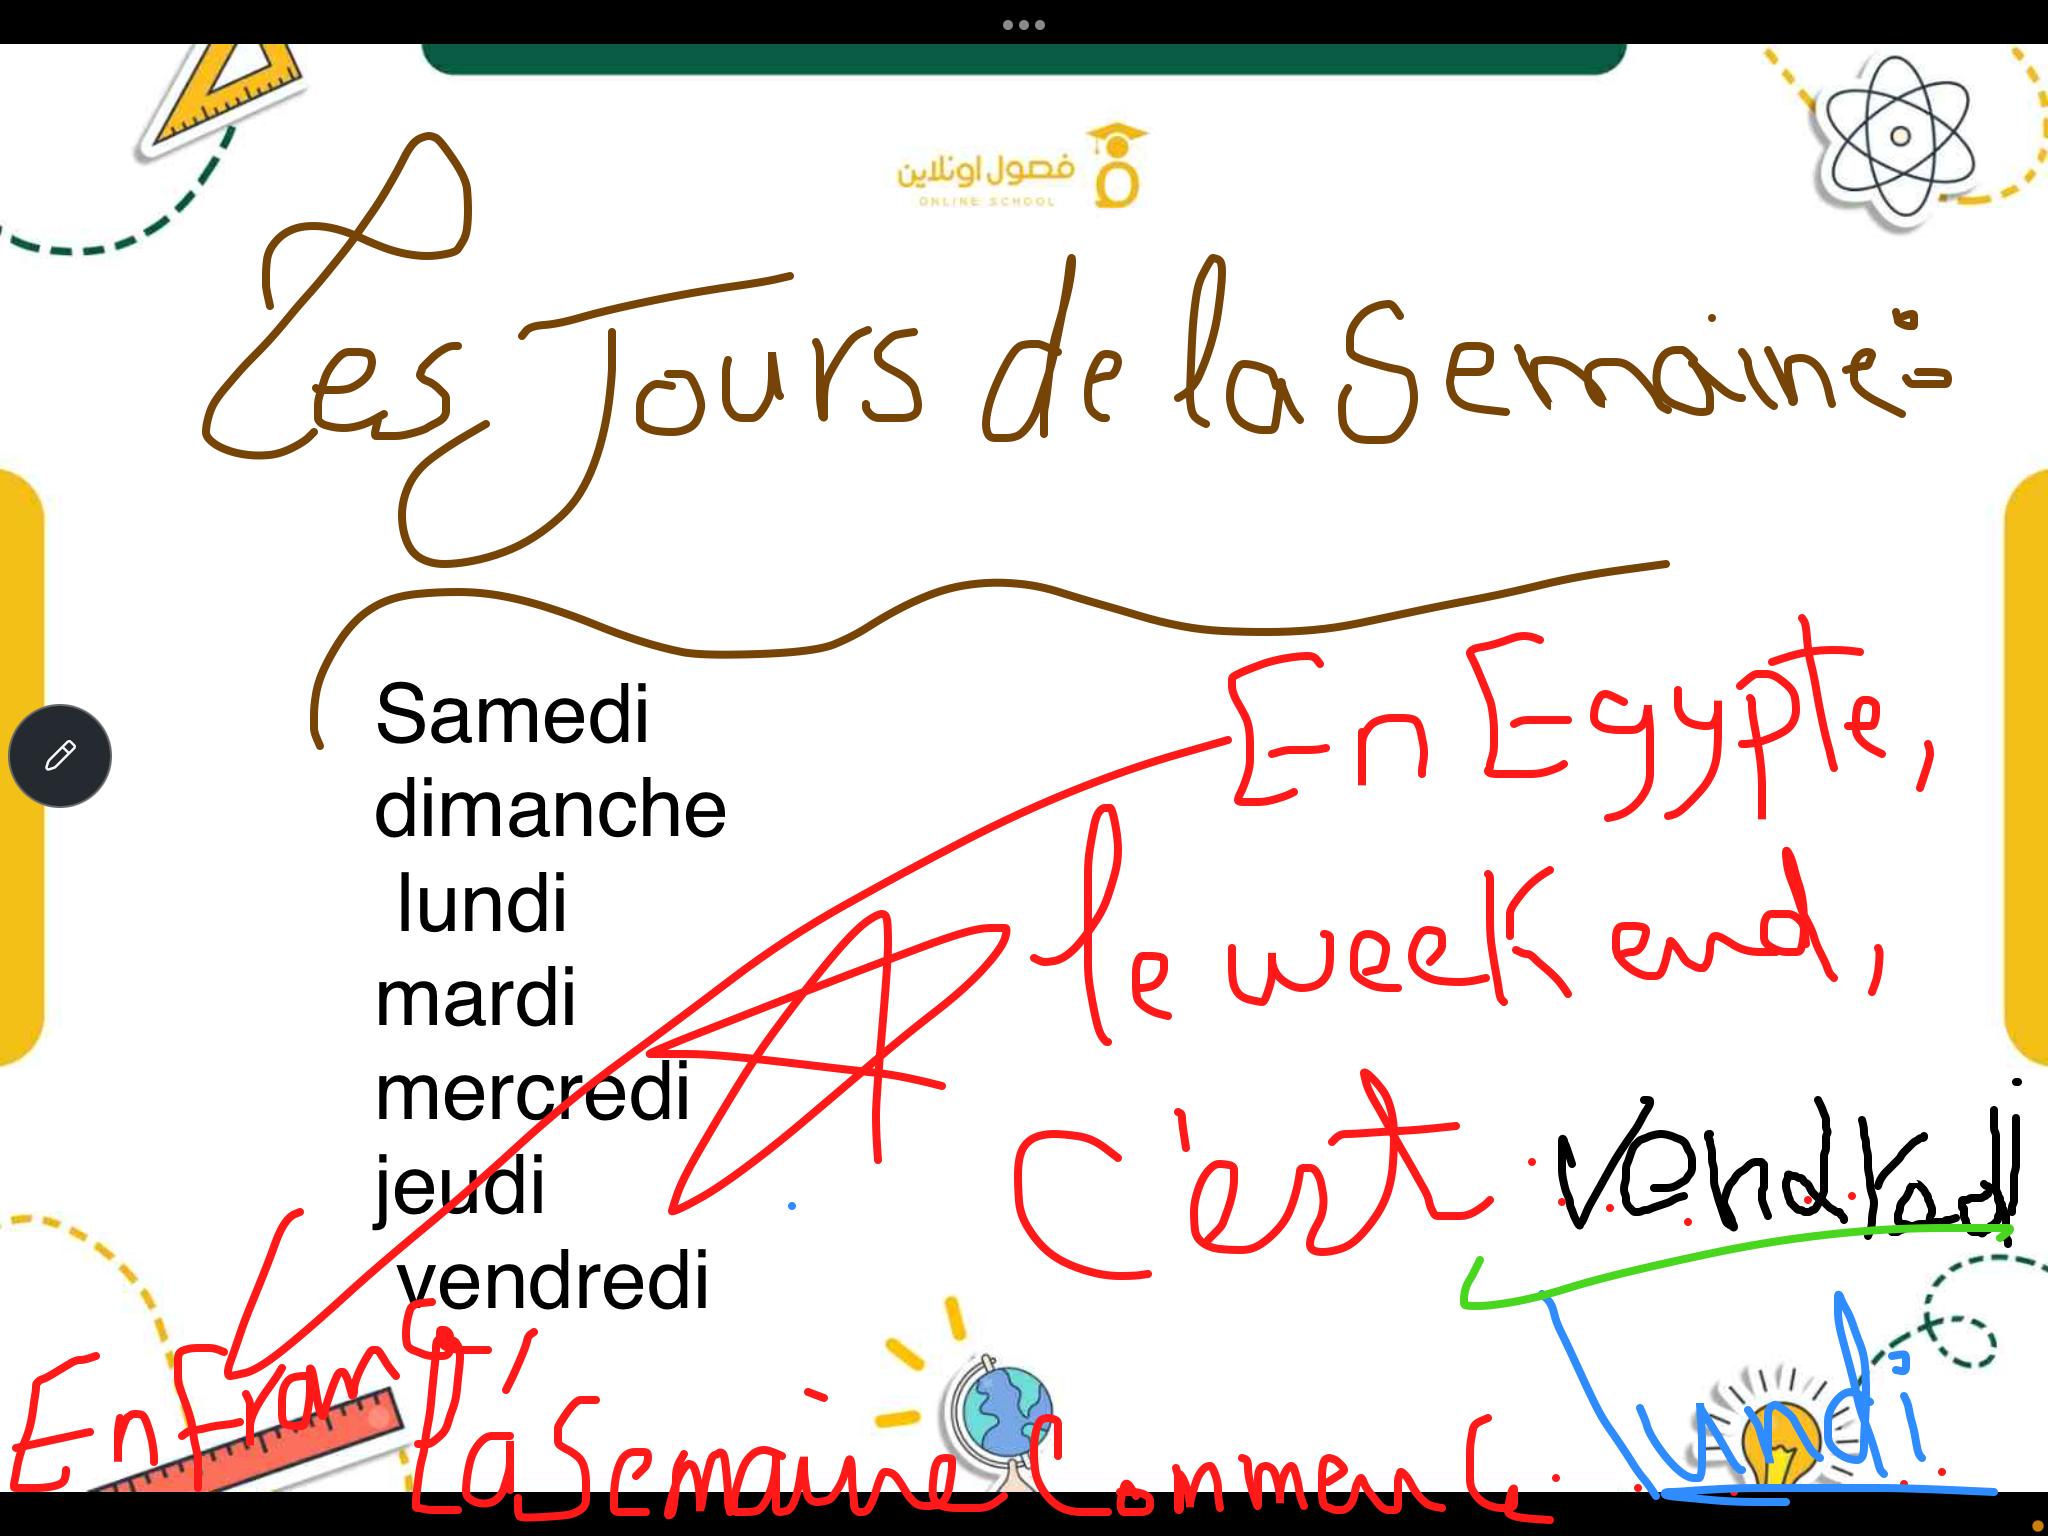 فصول اونلاين
ONLINE SCHOOL
Les Jours de la Semaine=
Samedi
dimanche
lundi
mardi
mercredi
jeudi
vendredi
En Egypte,
le week end,
c'est vendredi
En France,
La Semaine Commence
Lundi